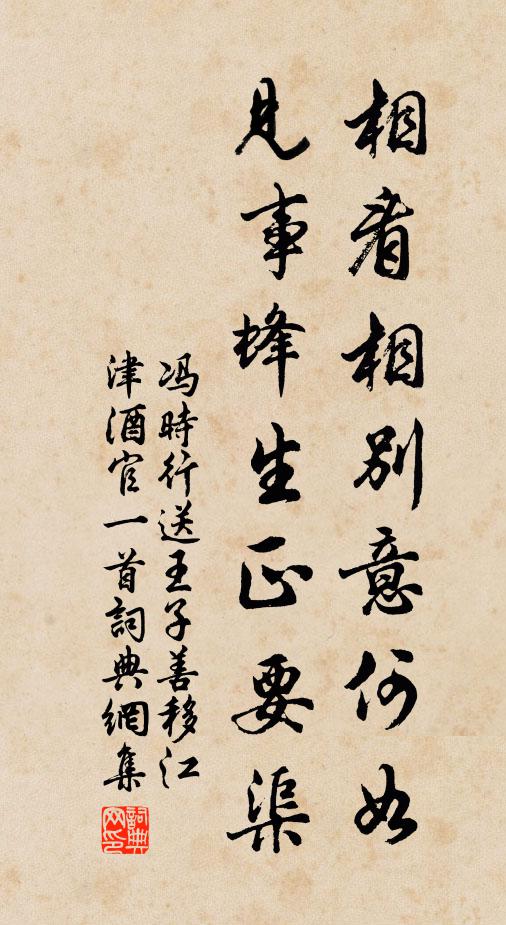 相看相別意何如
見事蜂生正要渠
冯時行送王子善移江
津酒官一首詞典網集
詞典
网印